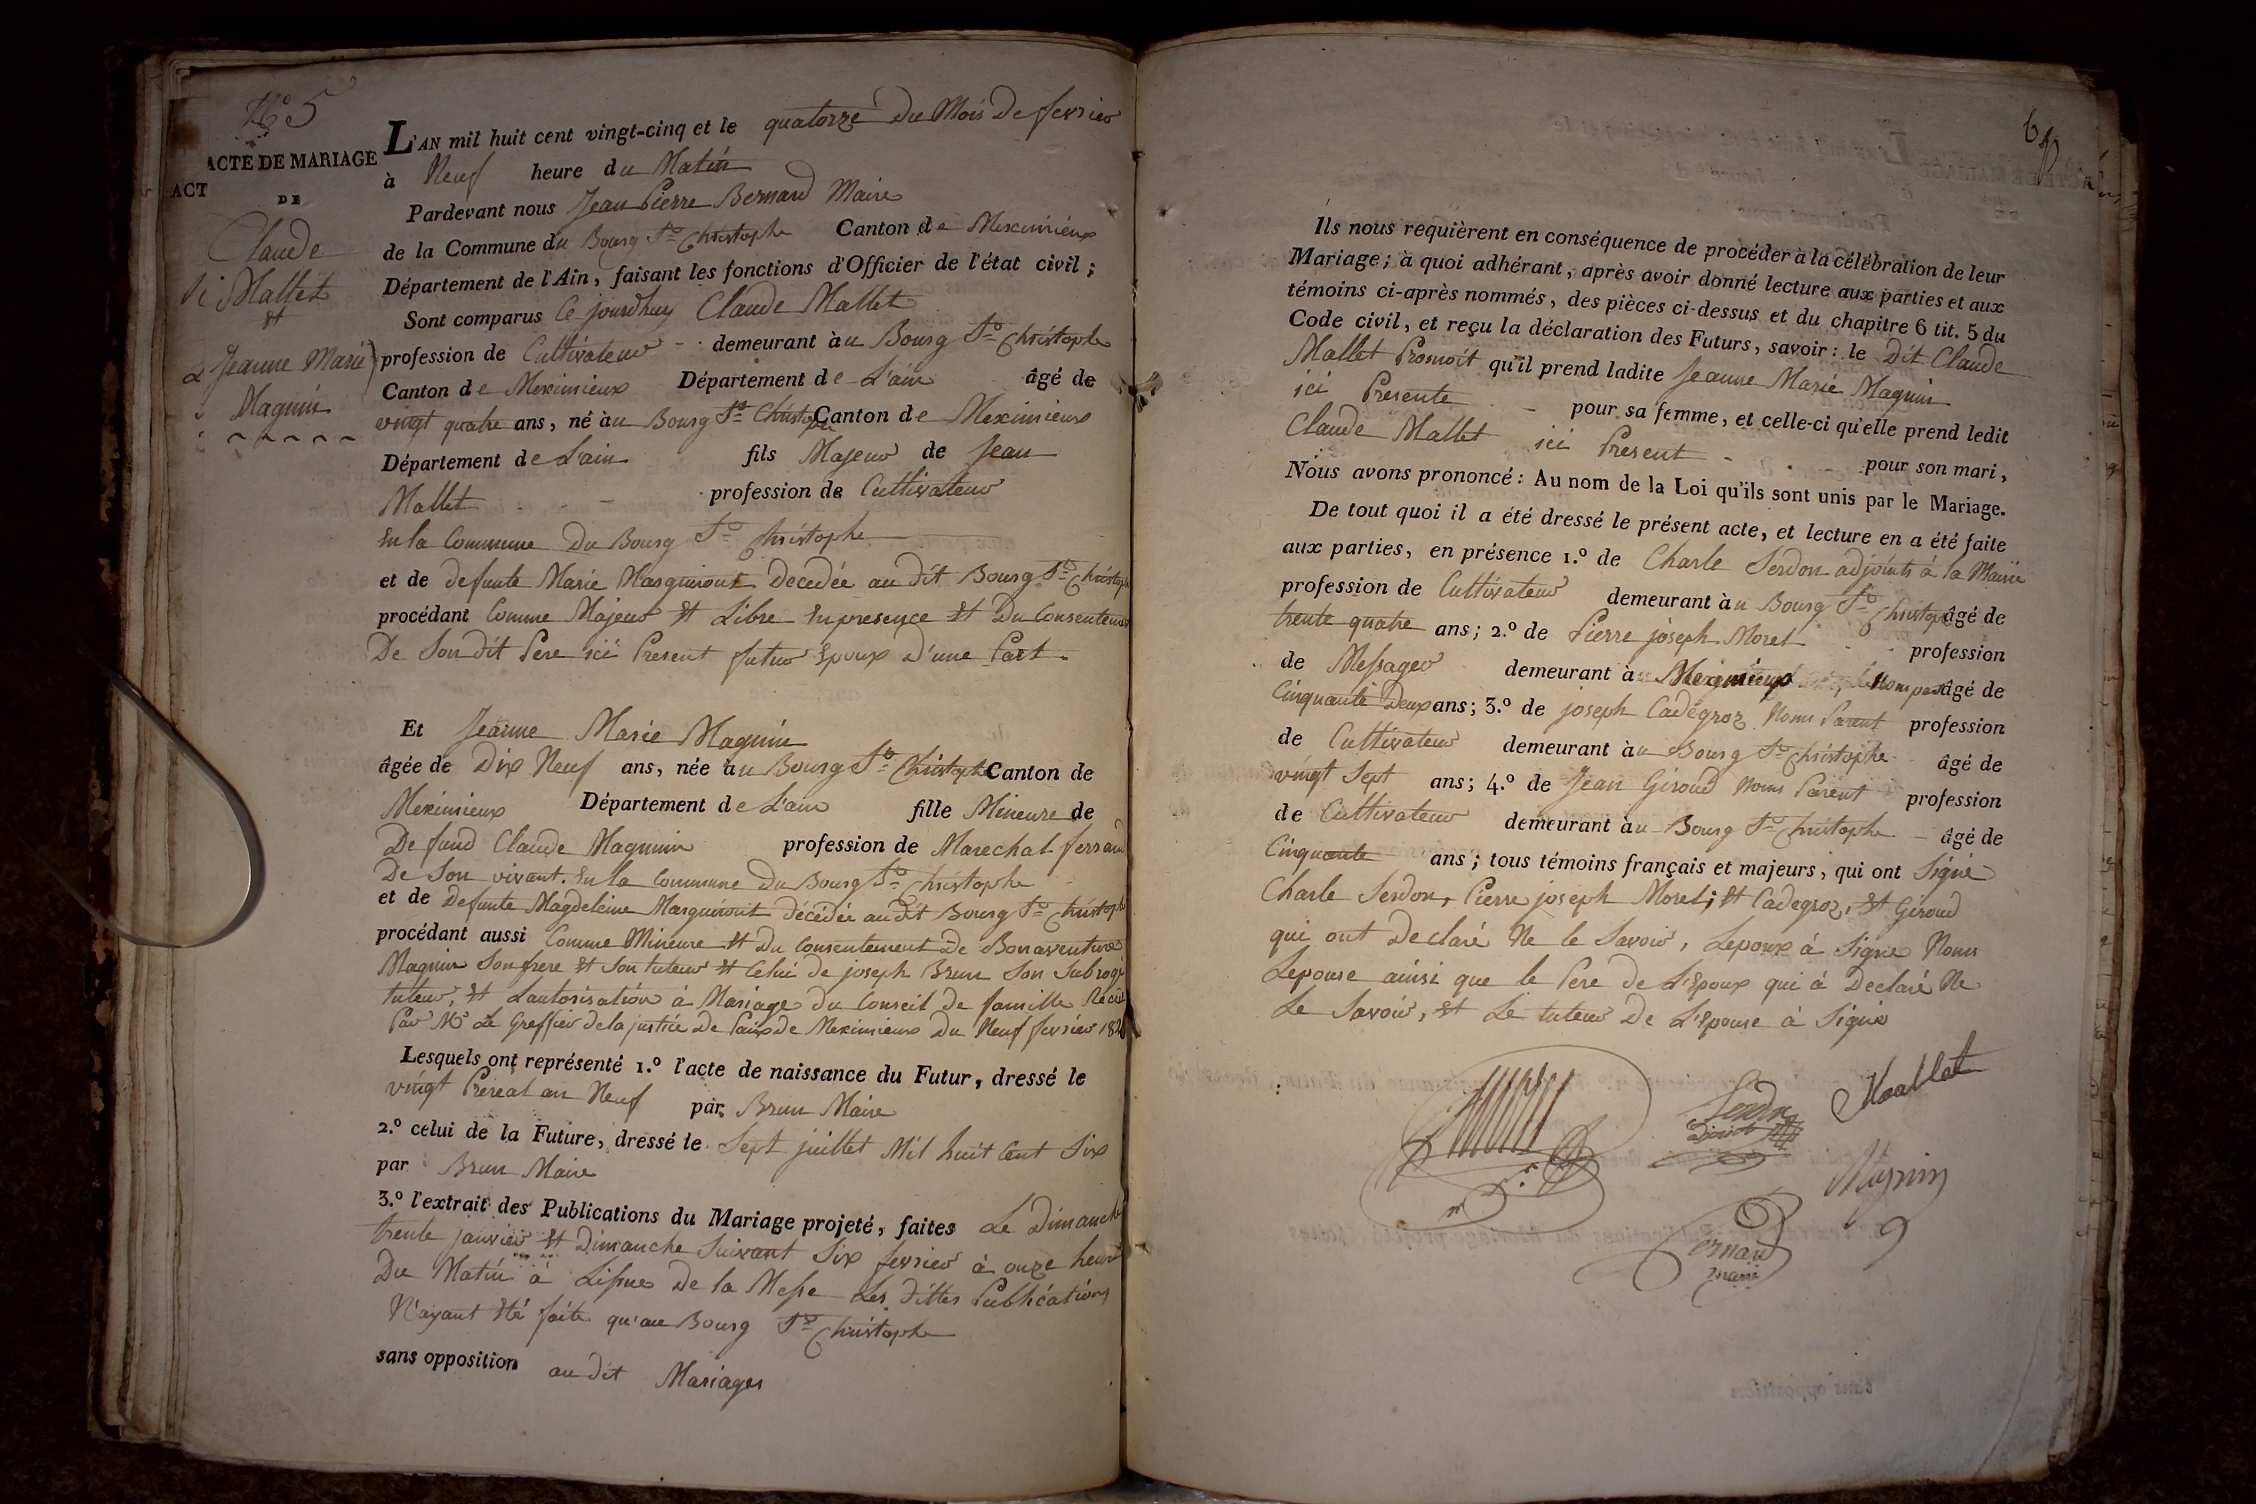 N.o 5
ACTE DE MARIAGE
ACT
DE
Claude
Mallet
et
Jeanne Marie
Magnin
L'AN mil huit cent vingt-cinq et le quatorze du Mois de fevrier
à Neuf heure du Matin
Pardevant nous Jean Pierre Bernard Maire
de la Commune du Bourg St. Christophe Canton de Meximieux
Département de l'Ain, faisant les fonctions d'Officier de l'état civil ;
Sont comparus Ce jourdhuy Claude Mallet
profession de Cultivateur demeurant au Bourg St. Christophe
Canton de Meximieux Département de L'ain âgé de
vingt quatre ans, né au Bourg St. Christophe Canton de Meximieux
Département de L'ain fils Majeur de Jean
Mallet profession de Cultivateur
En la Commune Du Bourg St. Christophe
et de defunte Marie Marguiront Decedée au dit Bourg St. Christophe
procédant Comme Majeur Et Libre En presence Et Du Consentement
De Son dit Pere ici Present futur Epoux D'une Part.
Et Jeanne Marie Magnin
âgée de Dix Neuf ans, née au Bourg St. Christophe Canton de
Meximieux Département de L'ain fille Mineure de
Defund Claude Magnin profession de Marechal ferrand
De Son vivant. En la Commune Du Bourg St. Christophe
et de Defunte Magdeleine Marguiront décédée au dit Bourg St. Christophe
procédant aussi Comme Mineure Et Du Consentement De Bonaventure
Magnin Son frere Et Son tuteur Et Celui de joseph Brun Son Subrogé
tuteur, Et Lautorisation à Mariage du Conseil de famille
Par Mr. Le Greffier de la justice De Paix de Meximieux Du Neuf fevrier
Lesquels ont représenté 1.º l'acte de naissance du Futur, dressé le
vingt Prereal an Neuf par Brun Maire
2.º celui de la Future, dressé le Sept juillet Mil huit Cent Six
par Brun Maire
3.º l'extrait des Publications du Mariage projeté, faites Le Dimanche
trente janvier Et Dimanche Suivant Six fevrier à onze heure
Du Matin à Lissue De la Messe Les dittes Publications
N'ayant Eté faite qu'au Bourg St. Christophe
sans opposition au dit Mariages
Ils nous requièrent en conséquence de procéder à la célébration de leur
Mariage ; à quoi adhérant, après avoir donné lecture aux parties et aux
témoins ci-après nommés, des pièces ci-dessus et du chapitre 6 tit. 5 du
Code civil, et reçu la déclaration des Futurs, savoir : le Dit Claude
Mallet qu'il prend ladite Jeanne Marie Magnin
ici Presente pour sa femme, et celle-ci qu'elle prend ledit
Claude Mallet ici Present pour son mari,
Nous avons prononcé : Au nom de la Loi qu'ils sont unis par le Mariage.
De tout quoi il a été dressé le présent acte, et lecture en a été faite
aux parties, en présence 1.º de Charle Serdon adjoints à la Mairie
profession de Cultivateur demeurant au Bourg St. Christophe âgé de
trente quatre ans ; 2.º de Pierre joseph Moret profession
de Messager demeurant à Meximieux Nom parent âgé de
Cinquante Deux ans ; 3.º de joseph Cadegroz Nom Parent profession
de Cultivateur demeurant au Bourg St. Christophe âgé de
vingt Sept ans ; 4.º de Jean Giroud Nom Parent profession
de Cultivateur demeurant au Bourg St. Christophe âgé de
Cinquante ans ; tous témoins français et majeurs, qui ont Signé
Charle Serdon, Pierre joseph Moret ; Et Cadegroz, Et Giroud
qui ont Declaré Ne le Savoir, Lepoux à Signé Nom
Lepouse ainsi que le Pere de L'Epoux qui à Declaré Ne
Le Savoir, Et Le tuteur De L'Epouse à Signé
Serdon
Maallet
Magnin
Bernard
maire